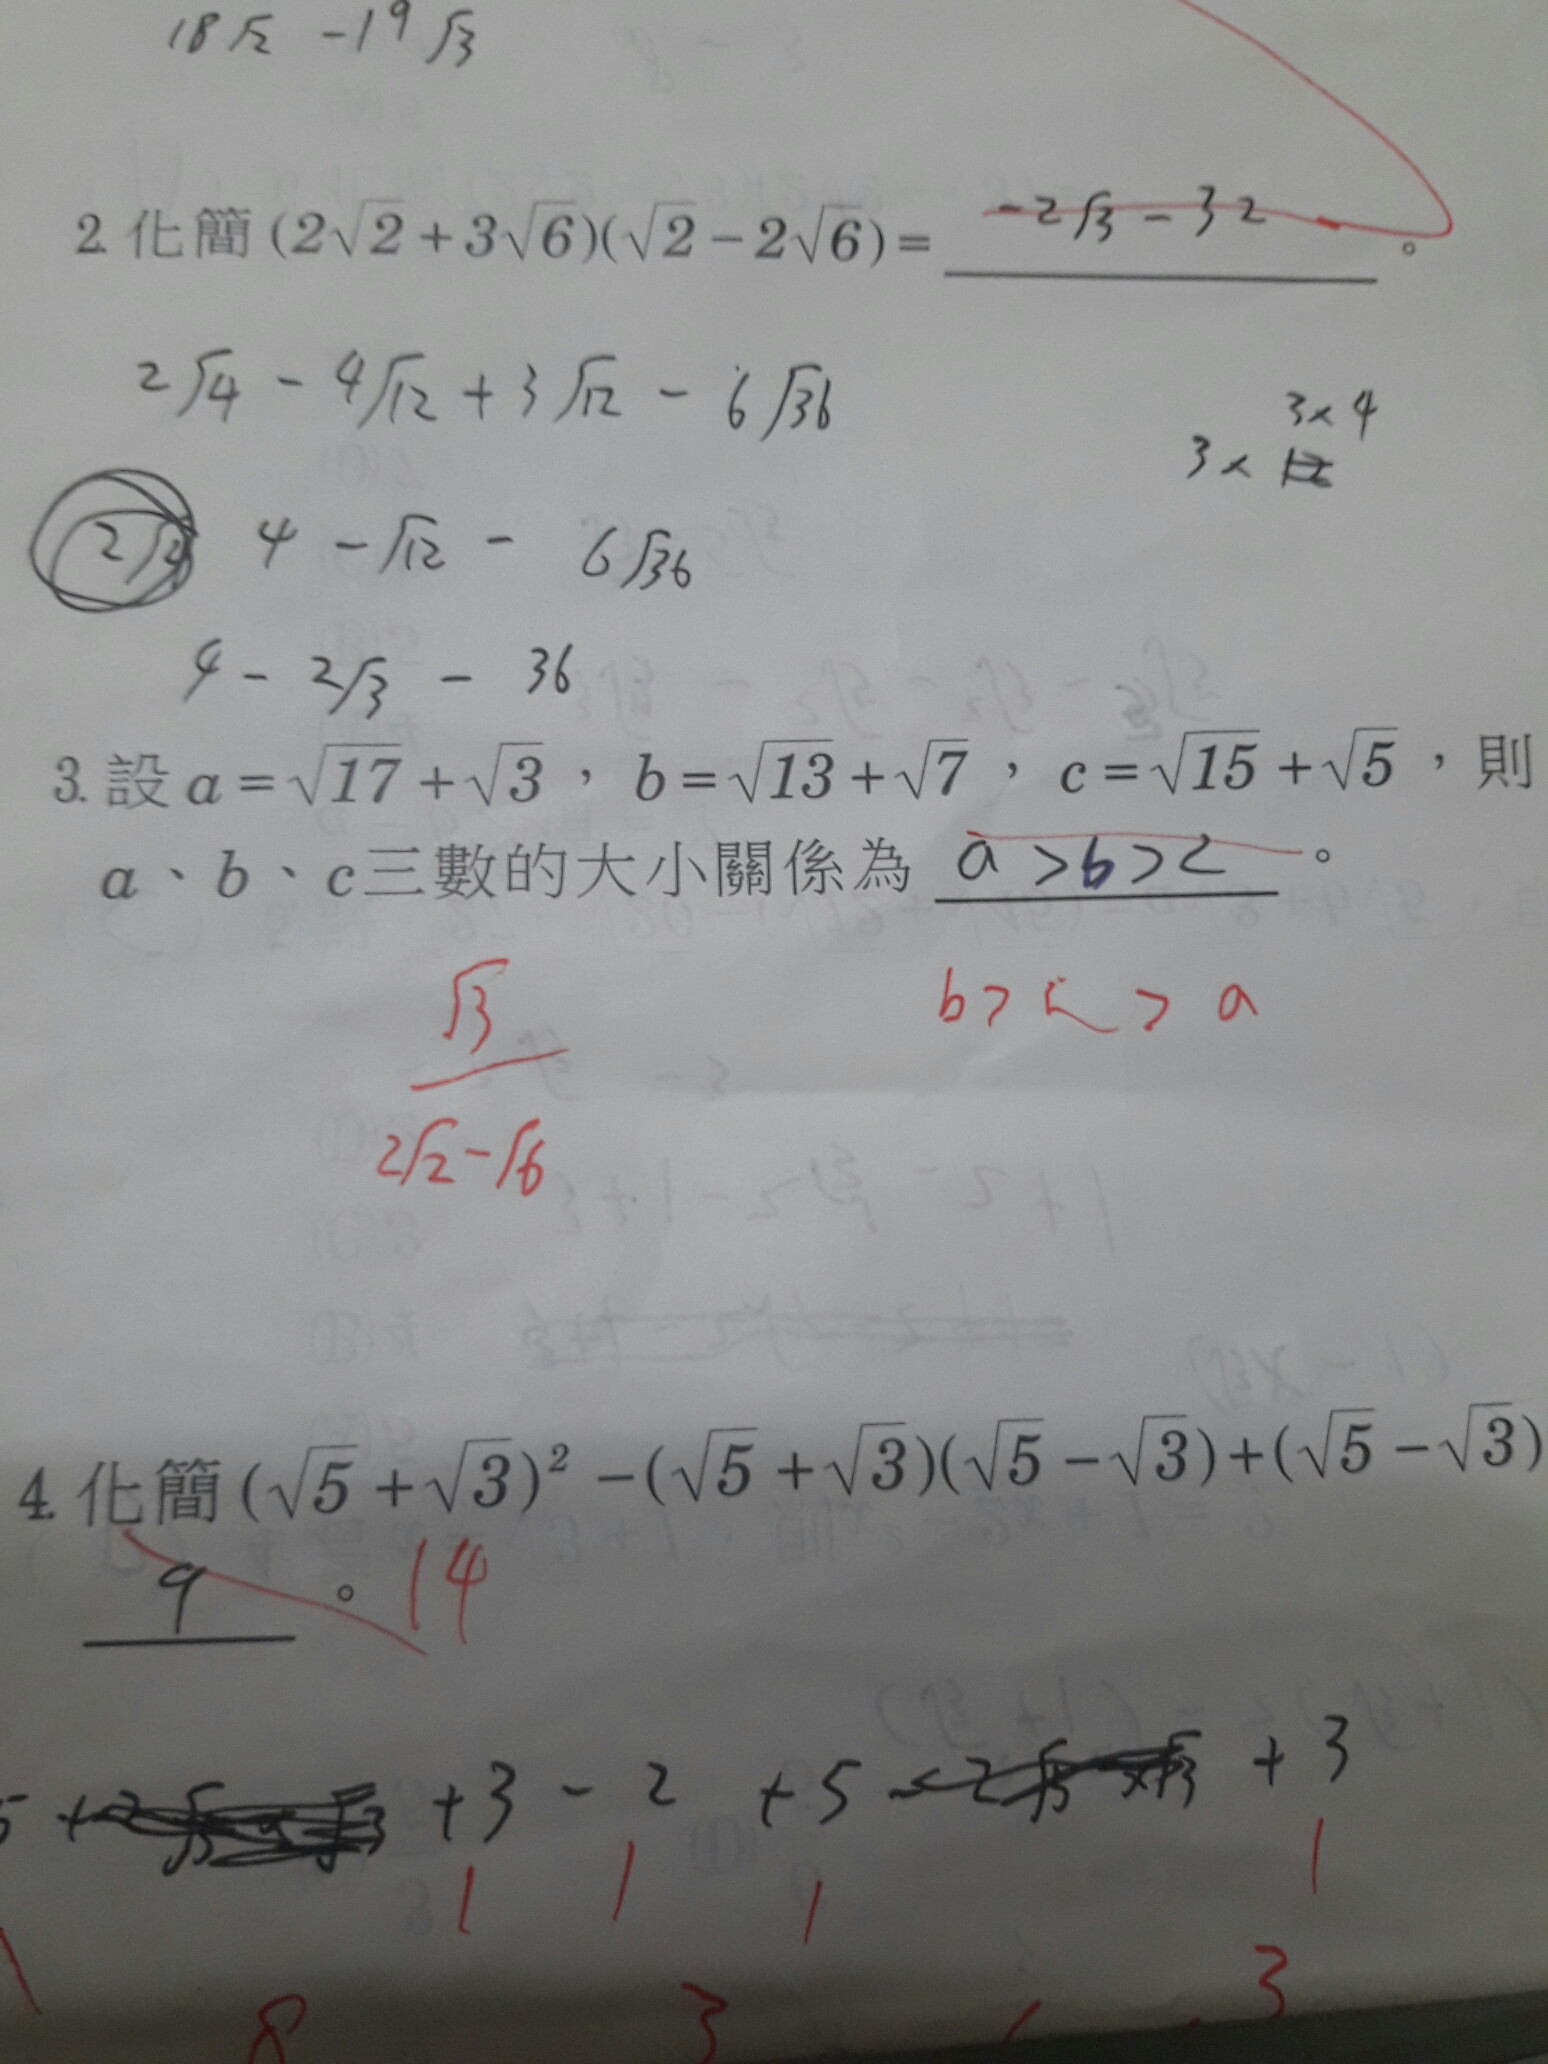 18√2 -19√3
2. 化簡(2√2+3√6)(√2-2√6)= -2√3-32 。
2√4 - 4√12 + 3√12 - 6√36
3×4
3×
4 - √12 - 6√36
4 - 2√3 - 36
3. 設a=√17+√3,b=√13+√7,c=√15+√5,則
a、b、c三數的大小關係為 a>b>c 。
b> c > a
√3
2√2-√6
4. 化簡(√5+√3)²-(√5+√3)(√5-√3)+(√5-√3)
9 。14
5 +3 - 2 +5 +3
8 3 3